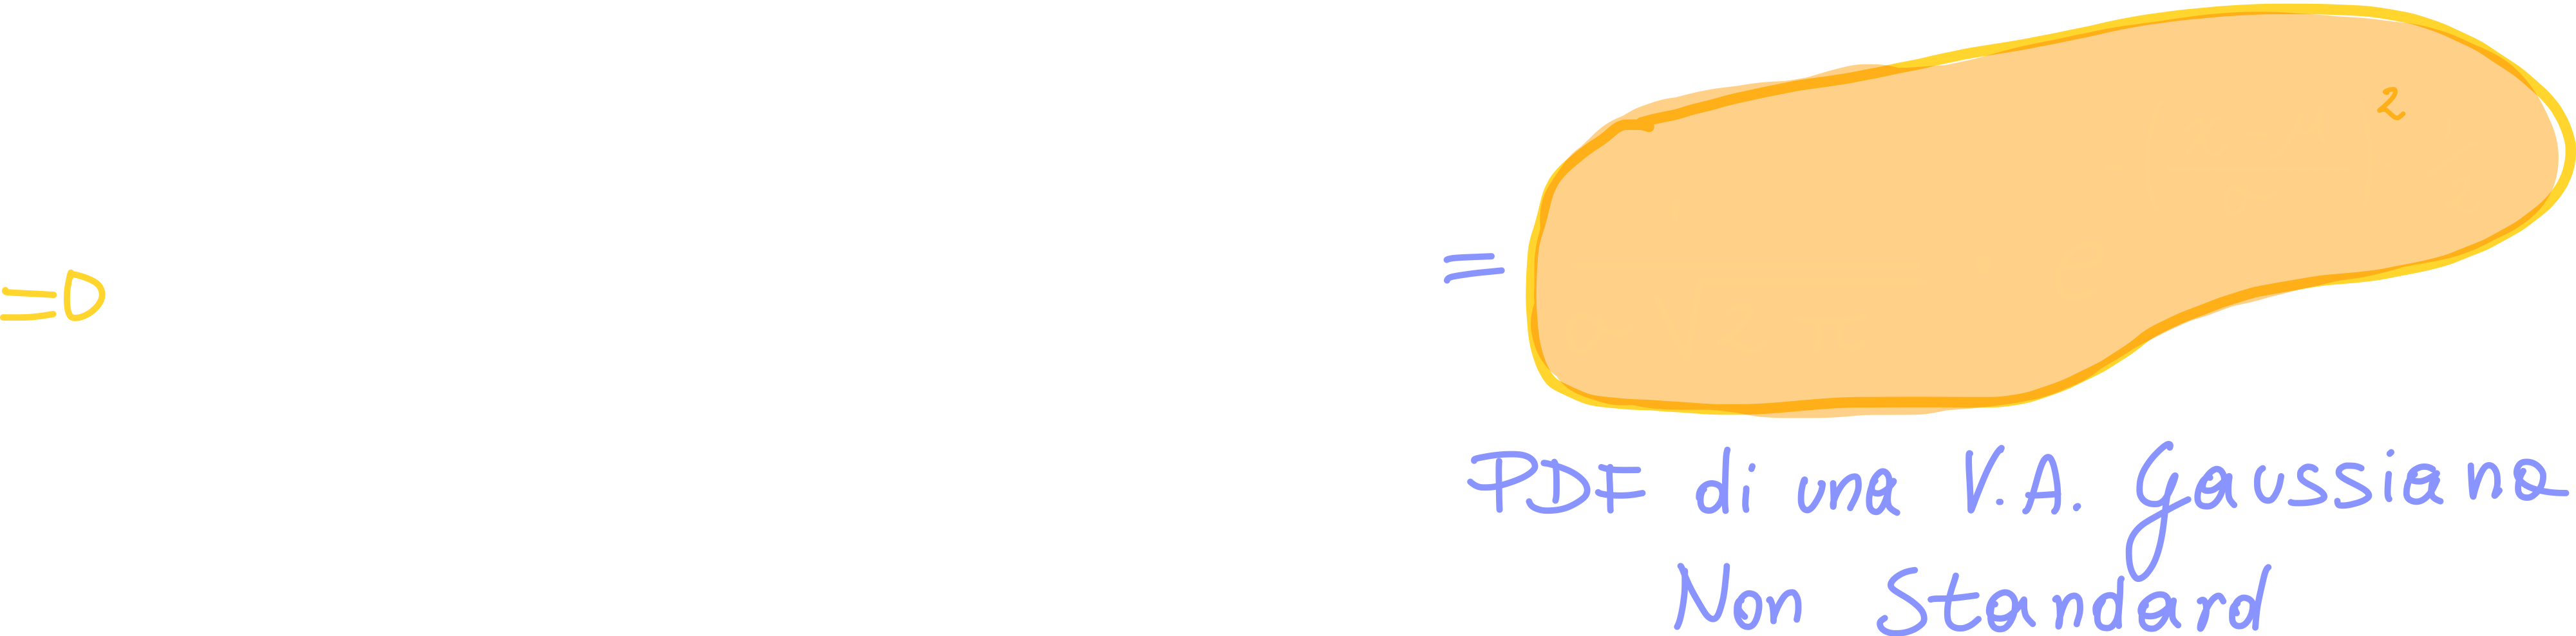 2
=
PDF di una V.A. Gaussiana
Non Standard